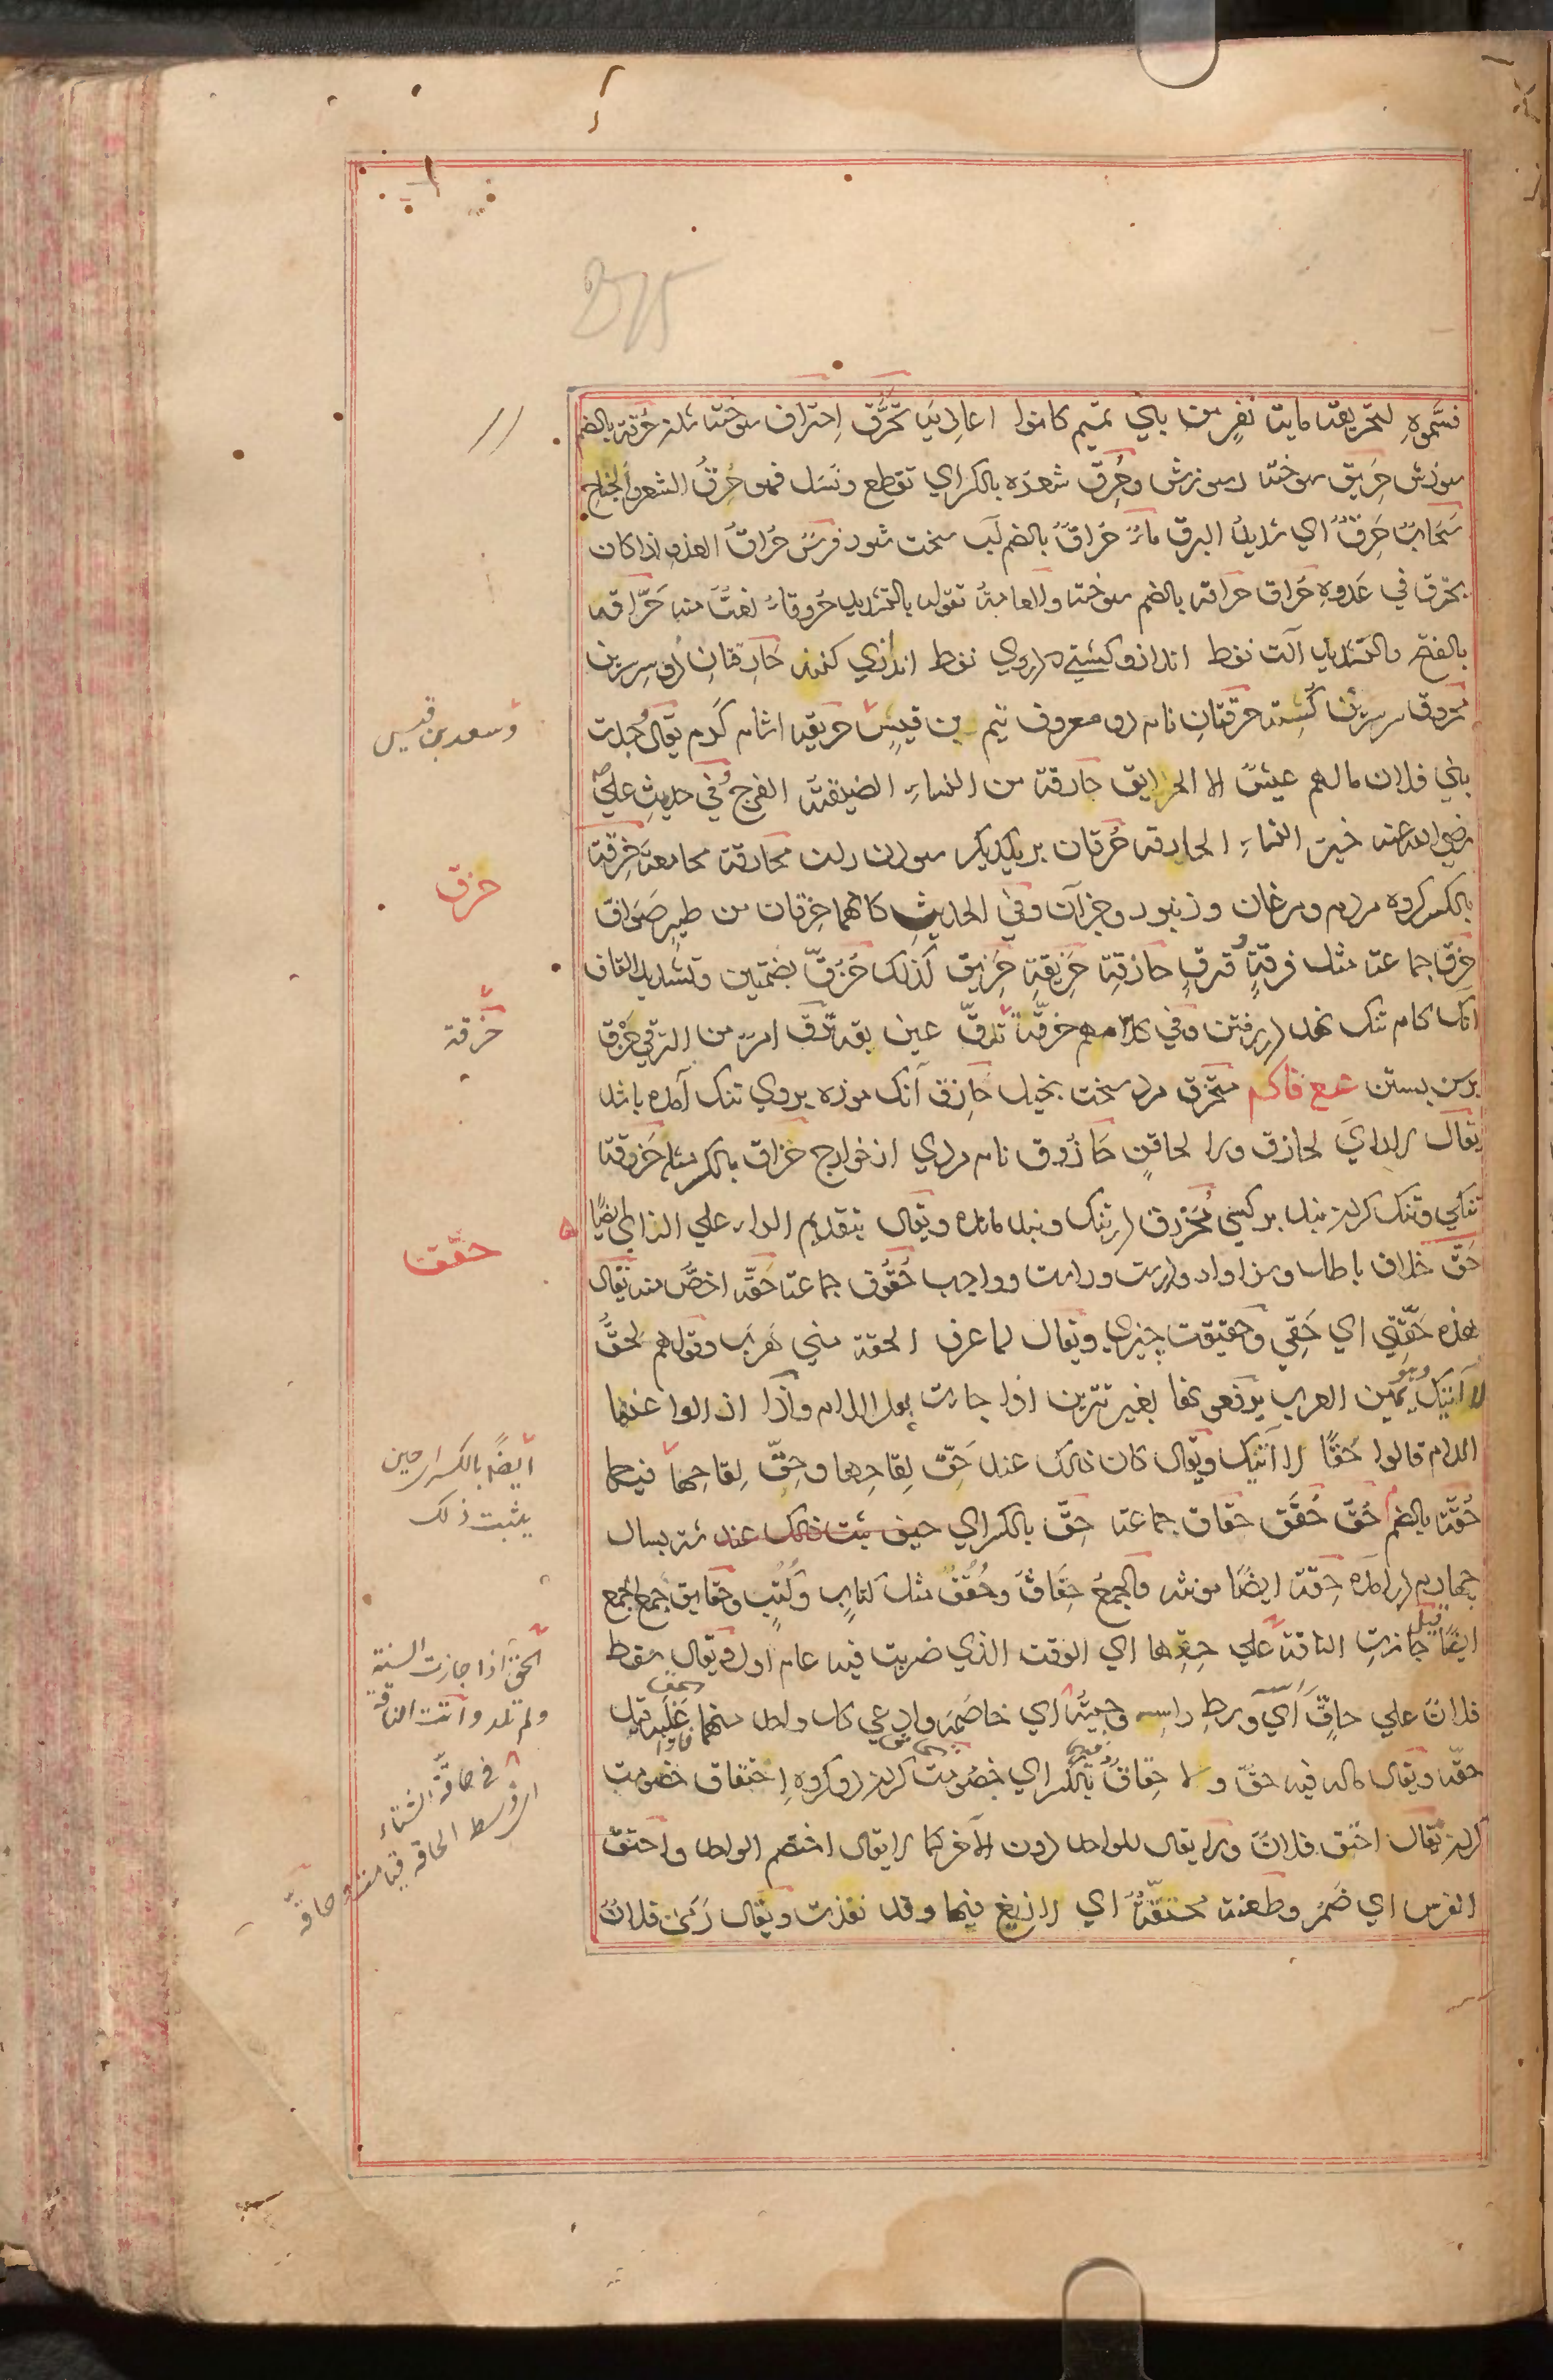 فسَّموهِ لتحريقه ماية نفرٍ من بني تميم كانوا اعاديَہ تَحَرُّق اِحتراق سوخته شدن حُرقة بالضم
سوزش حَرِيق سوخته و سوزش وحَرِقَ شعره بالكسر اي تقطع ونَسَل فهو حَرِقُ الشعر والجناحِ
سَحَابٌ حَرِقٌ اي شديدُ البرق ماءٌ حُراقٌ بالضم آب سخت شور فرسٌ حُراقُ العدوِ اذا كان
يحترق في عَدوِهِ حُراق حراقة بالضم سوخته والعامةُ تقوله بالتشديد حُروقاءُ لغةٌ منه حَرّاقه
بالفتح والتشديد آلت نفط انداز و كشتي كه در وي نفط اندازي كنند حارقتانِ دو سر سرين
محروق سر سرين گسسته حرقتانِ نام دو معروف تيم بن قيسٍ حريقه اشام گرم يقال وُجدت
بني فلان ما لهم عيشٌ الا الحرايق حارقة من النساءِ الضيقة الفرج وفي حديثِ عليٍّ
رضي الله عنه خير النساءِ الحارقه حُرقان بر يكديگر سودن ران محارقة مجامعة حِزقة
بالكسر گروه مردم ومرغان و زنبور وجزآن وفي الحديثِ كانهما حِزقان من طيرٍ صَوافّ
حِزَق جماعة مثل فرقةٍ وفرقٍ حازقة حَزِيقة حَزِيق كذلك حُزُقّ بضمتين وتشديد القاف
آنك گام تنگ نهد در رفتن وفي كلامهم حزقّة ترقّ عين بقه ترقَّ امر من الترقي حَزْق
بر سن بستن مع فاكم متحزق مرد سخت بخيل حازق آنك موزه بر وي تنگ آمده باشد
يقال لا راي لحازق ولا لحاقنٍ حازُوق نام مردي از خوارج حزاق بالكسر مثله حَزوقة
تنگي وتنگ كردن بند بر كسي مُحَزْرَق در تنگ و بند مانده ويقال بتقديم الراء علي الزاي ايضًا
حَقّ خلاف باطل وسزاوار ودرست وراست وواجب حُقُوق جماعة حَقّه اخصُّ منه يقال
هذه حَقَّتِي اي حَقِي وحقيقت چيزي ويقال لما عرف الحقة مني هَرَب وقولهم لَحَقُّ
لا آتيك وهو يمين العرب يرفعونها بغير تنوين اذا جاءت بعد اللام واذا ازالوا عنها
اللام قالوا حَقًّا لا آتيك ويقال كان ذلك عند حَقّ لِقاحِها وحِقّ لِقاحِها فيهما
حُقّة بالضم حُقّ حُقَق حقاق جماعة حِقّ بالكسر اي حين يثبت ذلك عند شتر بسال
چهارم در آمده حِقّة ايضًا مونثه والجمعُ حِقاقٌ وحُقُقٌ مثل كتابٍ وكُتُبٍ وحقايق جمع الجمع
ايضًا قيل جازتِ الناقة علي حِقِّها اي الوقت الذي ضربت فيه عام اول ويقال سقط
فلان علي حاقِّ راسِه اي وسطِ راسِه وجئته اي خاصَمَه وادعي كل واحد منهما
حقّه ويقال ماله فيه حقّ ولا حِقاقٌ بالكسر اي خصومت كردن دو گروه اِحتقاق خصومت
كردن يقال احتق فلانٌ ولا يقال للواحد دون الآخر كما لا يقال اختصم الواحد واحتقّ
الفرس اي ضَمُر وطعنة محتقّةٌ اي لا زيغ فيها وقد نفذت ويقال رَمَى فلانٌ
وسعد بن قيس
حزق
حزقة
حقق
ايضًا بالكسر اي حين
يثبت ذلك
الحق اذا جازت السنة
ولم تلد واتت الناقة
في حاقّة الشتاء
اي وسط الحاقه قيامت وحاقّه